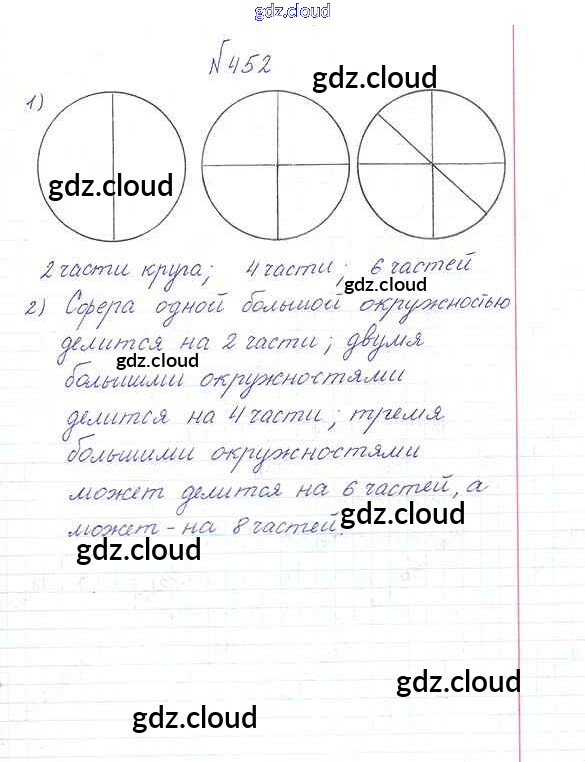 gdz.cloud
№452
gdz.cloud
1)
gdz.cloud
2 части круга; 4 части; 6 частей
gdz.cloud
2) Сфера одной большой окружностью
делится на 2 части; двумя
gdz.cloud
большими окружностями
делится на 4 части; тремя
большими окружностями
может делится на 6 частей, а
gdz.cloud
может - на 8 частей.
gdz.cloud
gdz.cloud
gdz.cloud